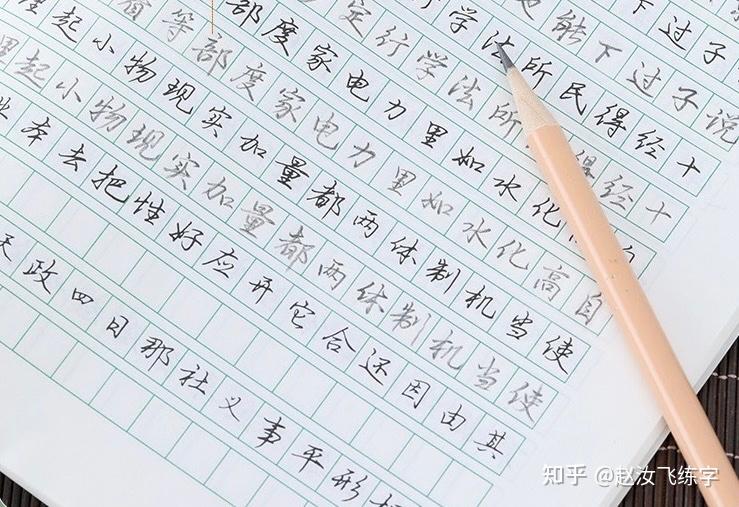 下过子
能下过子说
学法所民得经十
定行学法所得经十
部度家电力里如水化
等部度家电力里如水化高自
起小物现实加量都两体制机当使
里起小物现实加量都两体制机当使
本去把性好应开它合还因由其
天政四日那社义事平形
知乎 @赵汝飞练字